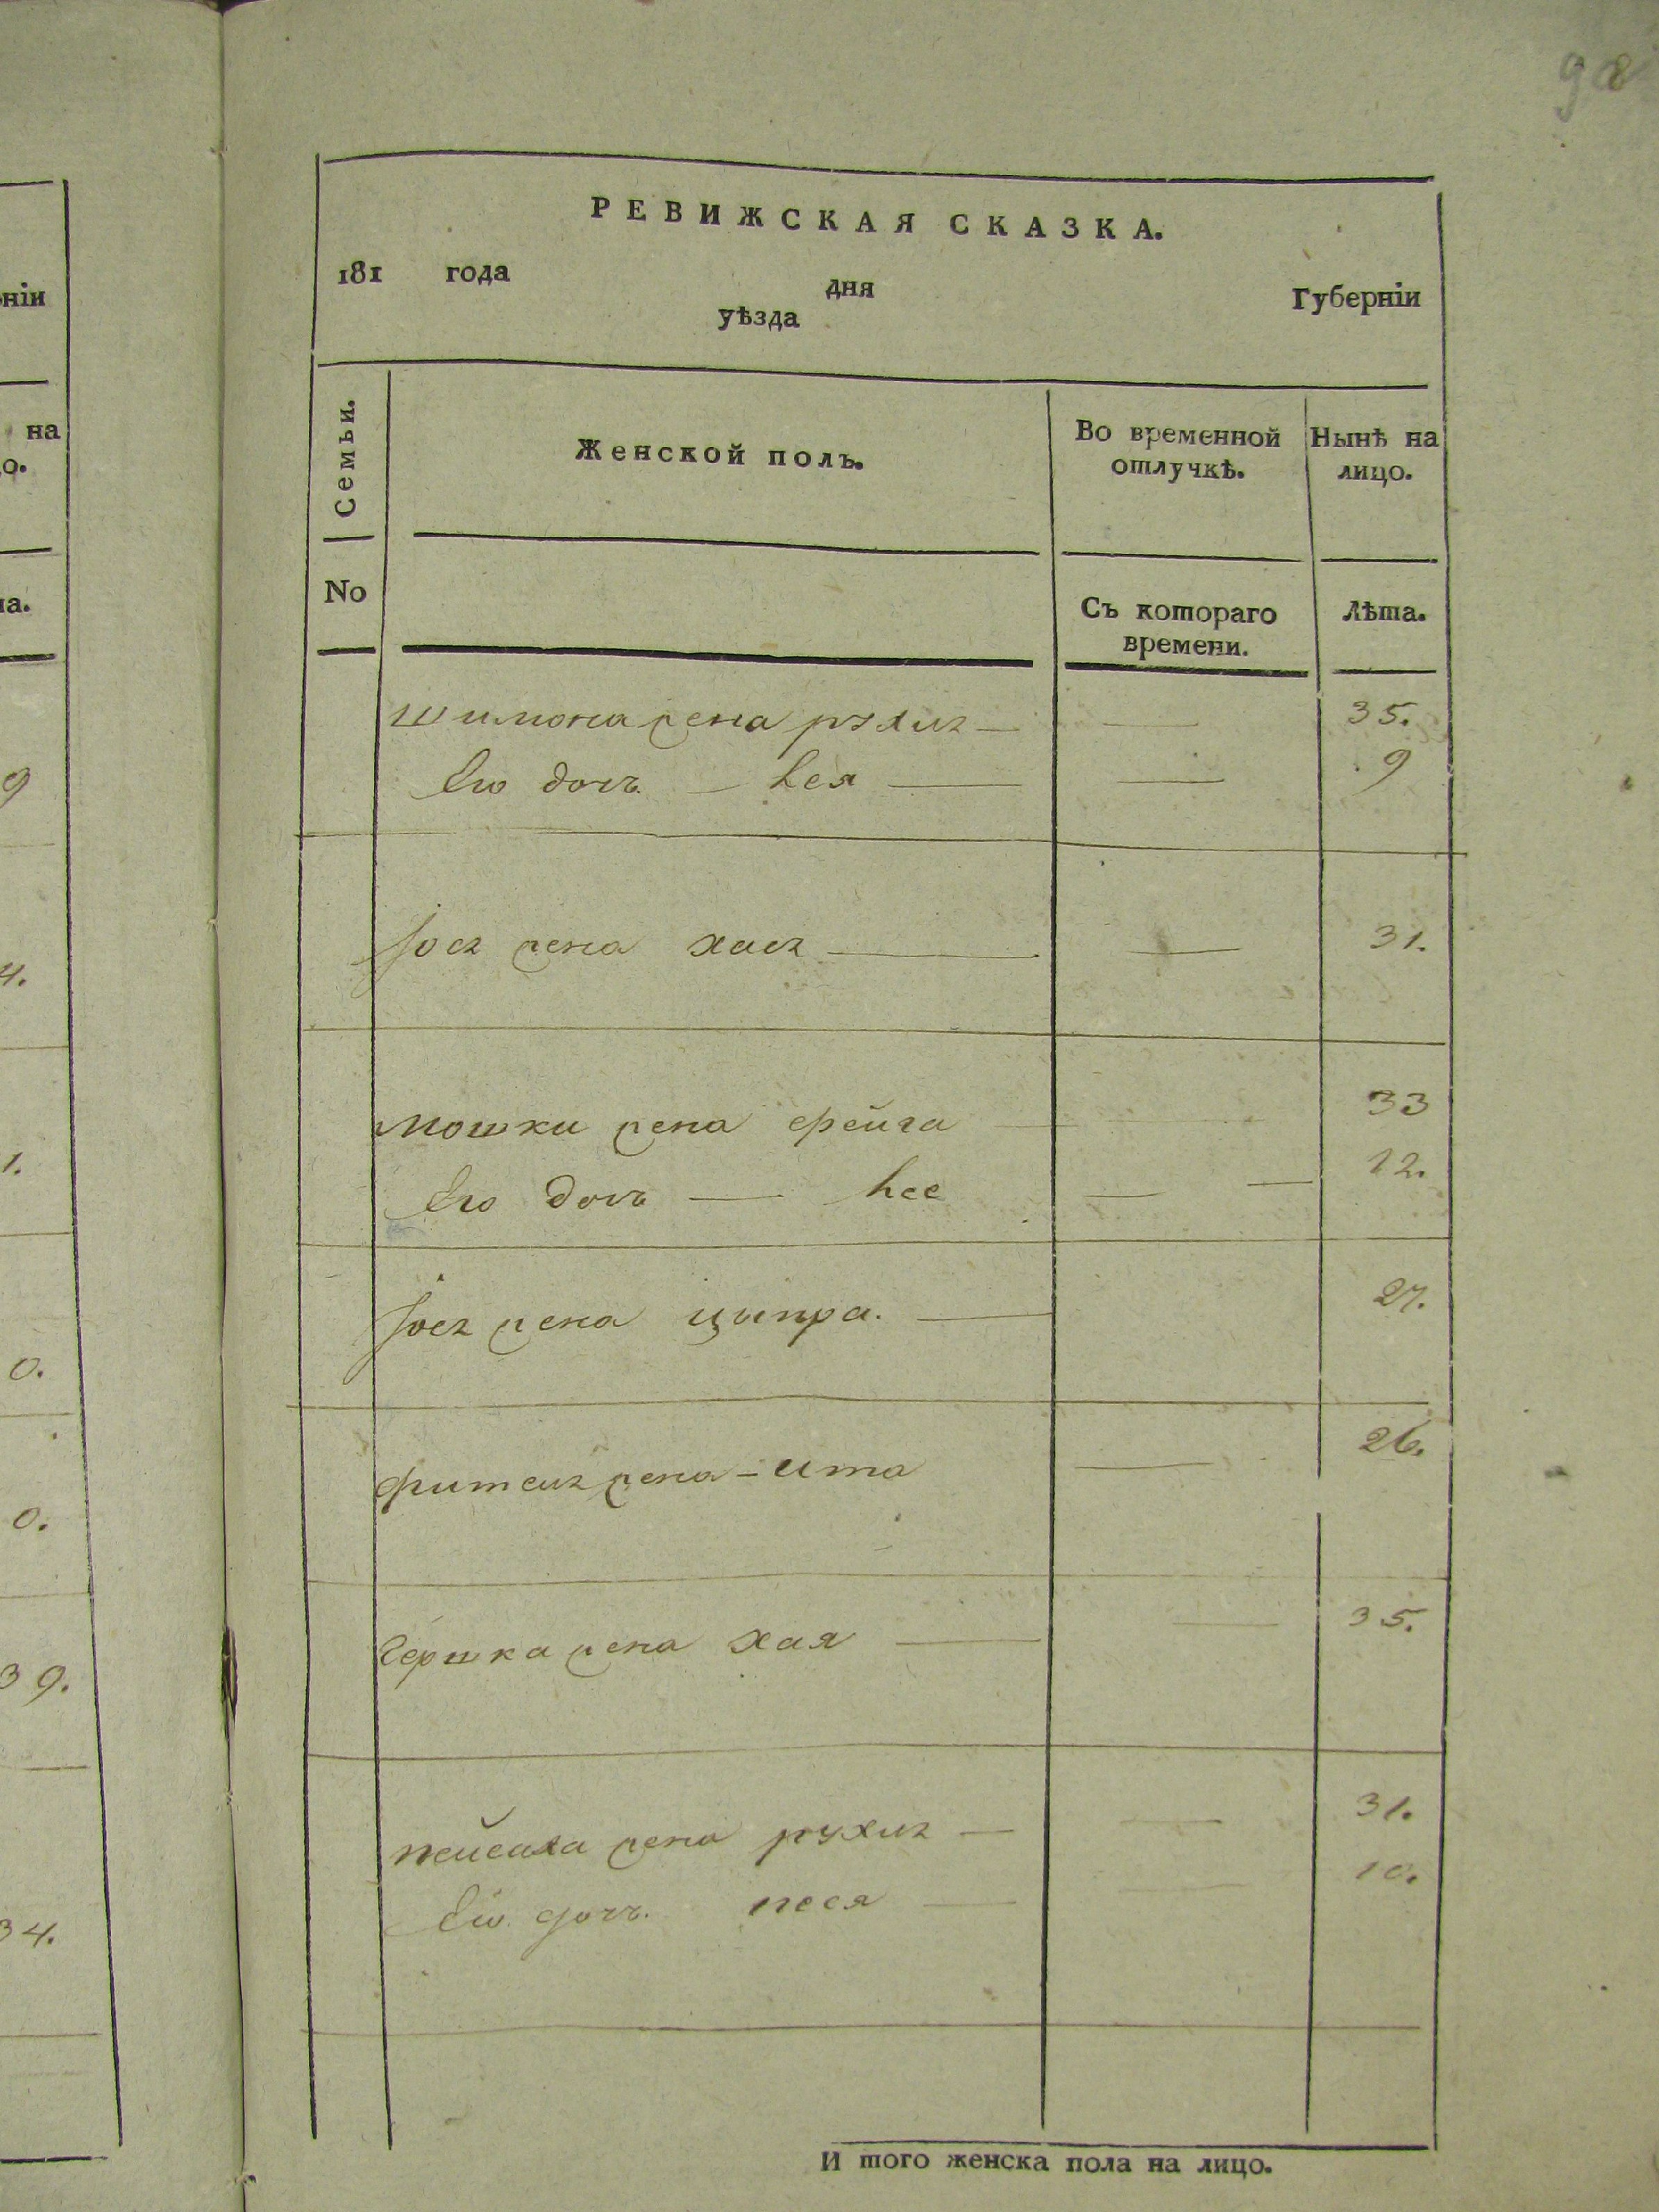 РЕВИЖСКАЯ СКАЗКА.
181 года дня Губернїи
уѣзда
Семьи.
Женской полъ.
Во временной отлучкѣ.
Нынѣ на лицо.
No
Съ котораго времени.
Лѣта.
Шимона жена рухля — — 35.
Его дочь — — 9
жена хася — — 31.
Мошки жена фейга 33
Его дочь — — — 12.
жена ципра. — 27.
жена — ита — 26.
Гершка жена хая — — 35.
жена рухля — — 31.
Его дочь песя — — 10.
И того женска пола на лицо.
нїи
на
о.
а.
9
4.
1.
0.
0.
39.
34.